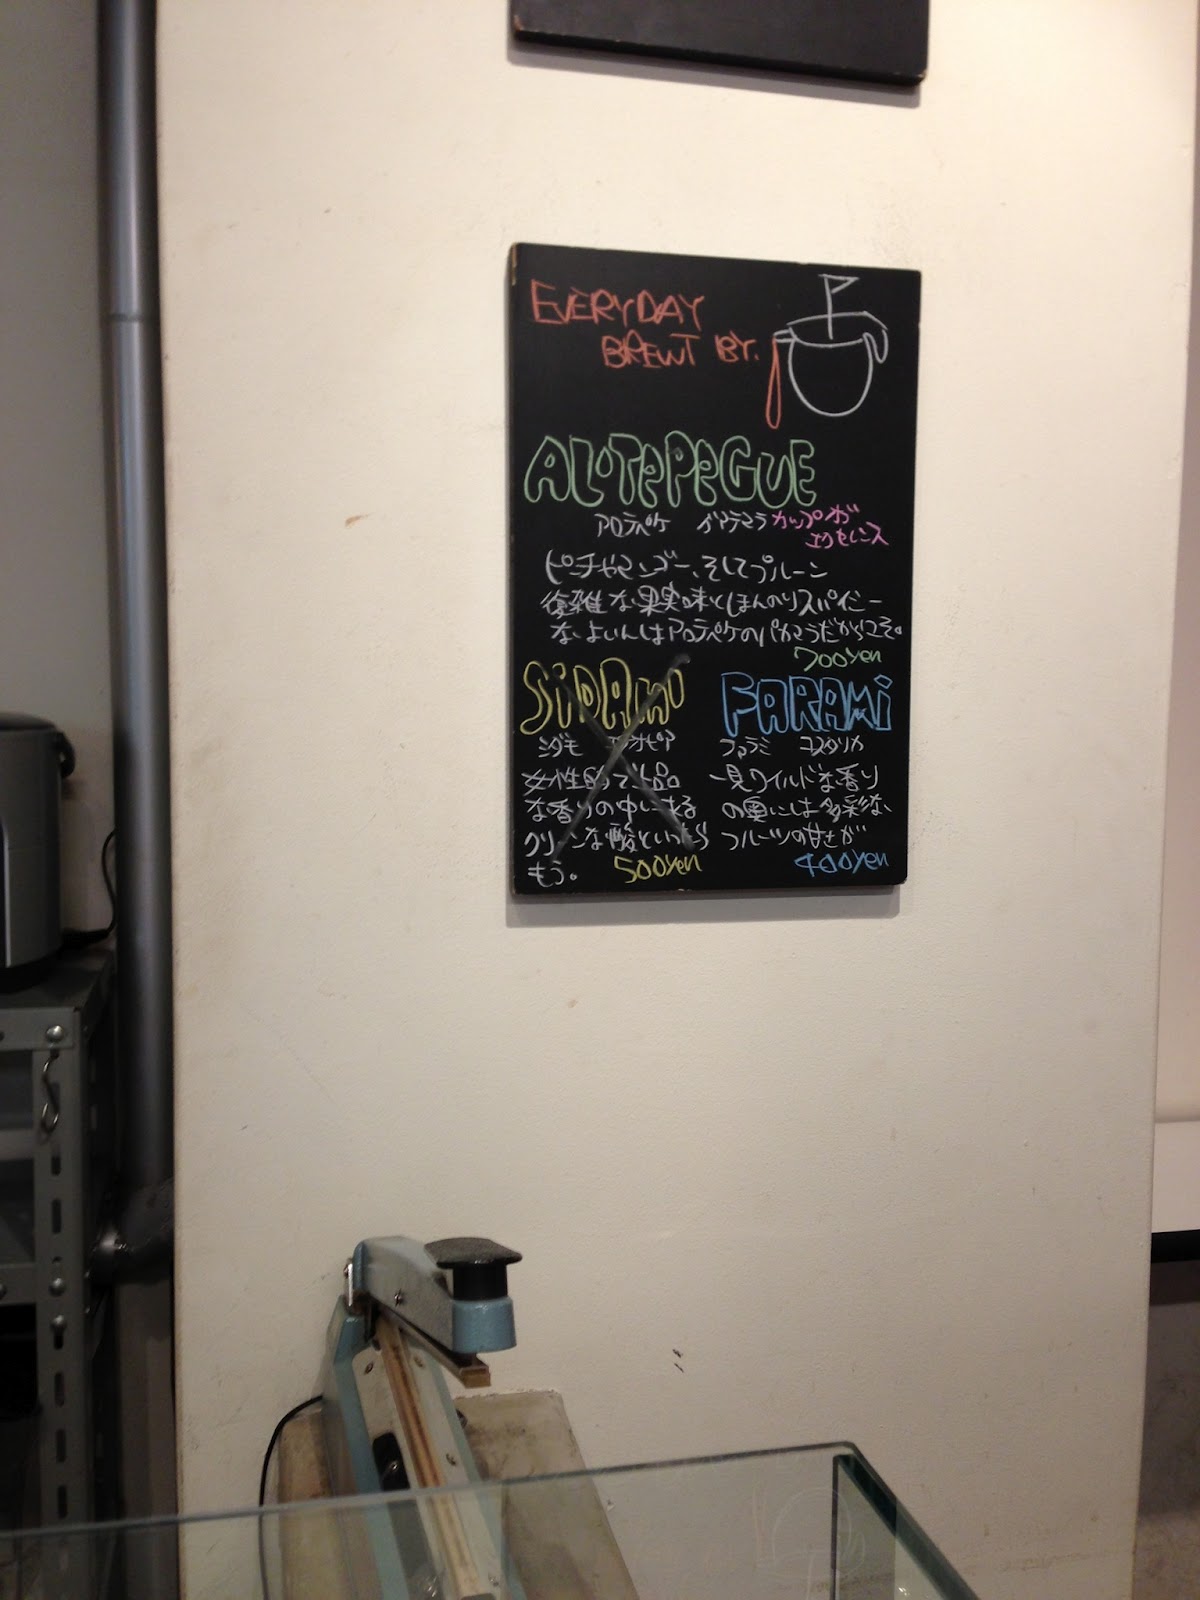 EVERYDAY
BREWT BY.
ALOTePeGUE
アロテペケ グアテマラ カップオブ
エクセレンス
ピーチやマンゴー、そしてプルーン
複雑な果実味とほんのりスパイシー
なよいんはアロテペケのパカマラだからこそ。
700yen
SiDAMO
シダモ エチオピア
女性的で上品
な香りの中にある
クリーンな酸といったら
もう。
500yen
FARAMi
ファラミ コスタリカ
一見ワイルドな香り
の奥には多彩な
フルーツの甘さが
400yen